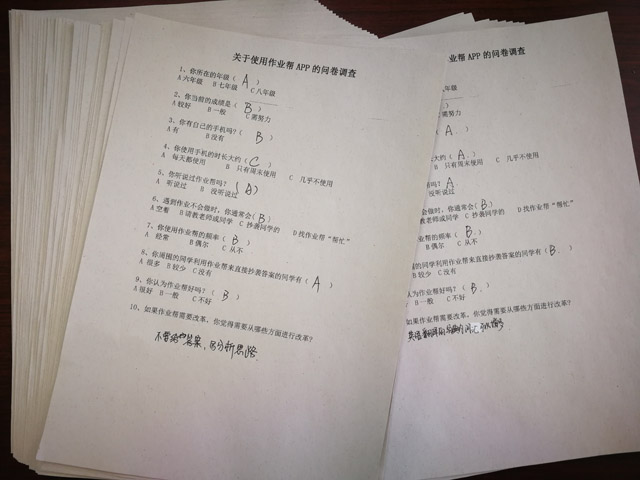 关于使用作业帮APP的问卷调查
1、你所在的年级( A )
A 六年级 B 七年级 C 八年级
2、你当前的成绩是( B )
A 较好 B 一般 C 需努力
3、你有自己的手机吗?( B )
A 有 B 没有
4、你使用手机的时长大约( C )
A 每天都使用 B 只有周末使用 C 几乎不使用
5、你听说过作业帮吗?( A )
A 听说过 B 没听说过
6、遇到作业不会做时,你通常会( B )
A 空着 B 请教老师或同学 C 抄袭同学的 D 找作业帮“帮忙”
7、你使用作业帮的频率( B )
A 经常 B 偶尔 C 从不
8、你周围的同学利用作业帮来直接抄袭答案的同学有( A )
A 很多 B 较少 C 没有
9、你认为作业帮好吗?( B )
A 很好 B 一般 C 不好
10、如果作业帮需要改革,你觉得需要从哪些方面进行改革?
不要给出答案,只分析思路
业帮APP的问卷调查
年级
A.
大约( A.
只有周末使用 C 几乎不使用
吗?( A.
没听说过
会做时,你通常会( B.
教老师或同学 C 抄袭同学的 D 找作业帮“帮忙”
帮的频率( B.
B 偶尔 C 从不
的同学利用作业帮来直接抄袭答案的同学有( B.
B 较少 C 没有
作业帮好吗?( B. )
B 一般 C 不好
如果作业帮需要改革,你觉得需要从哪些方面进行改革?